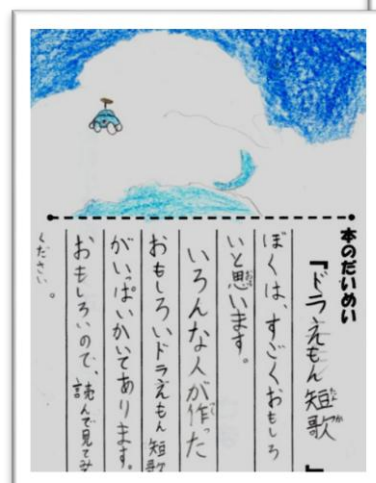 本のだいめい
『ドラえもん短歌』
ぼくは、すごくおもしろ
いと思います。
いろんな人が作った
おもしろいドラえもん短歌
がいっぱいかいてあります。
おもしろいので、読んで見てみ
ください。